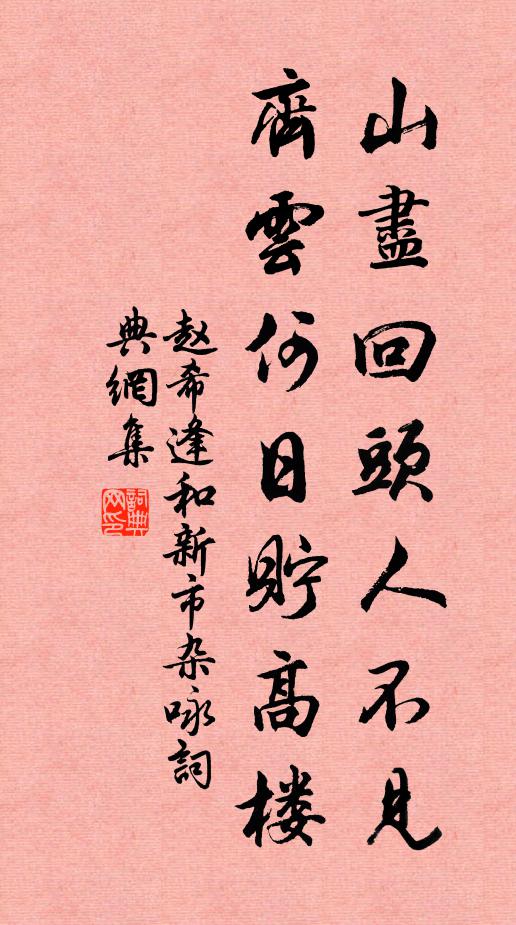 山盡回頭人不見
齊雲何日貯高楼
赵希逢和新市杂咏詞
典網集
詞典网印